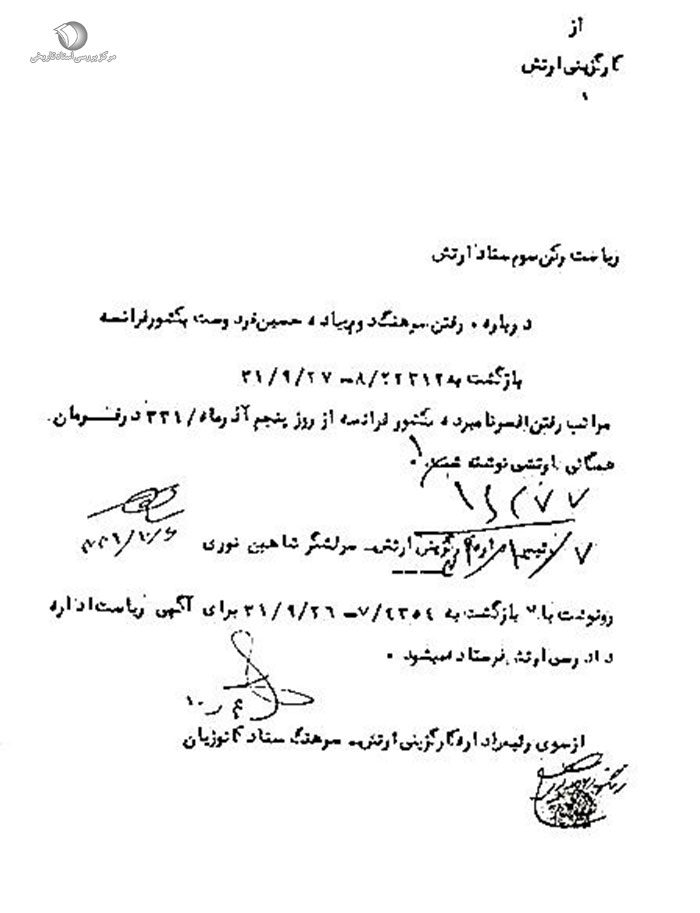 مرکز بررسی اسناد تاریخی
از
کارگزینی ارتش
۱
ریاست رکن سوم ستاد ارتش
درباره رفتن سرهنگ دوم پیاده حسین فردوست بکشور فرانسه
بازگشت به ۲۲۳۱۲/۸ـ ۳۱/۹/۲۷
مراتب رفتن افسر نامبرده بکشور فرانسه از روز پنجم آذرماه/۳۳۱ در فرمان
همگانی ارتشی نوشته شد.
۷
رئیس اداره کارگزینی ارتش ـ سرلشگر شاهین نوری
رونوشت بازگشت به ۴۳۵۴/۷ـ ۳۱/۹/۲۶ برای آگهی ریاست اداره
دادرسی ارتش فرستاده میشود .
از سوی رئیس اداره کارگزینی ارتش ـ سرهنگ ستاد کاتوزیان